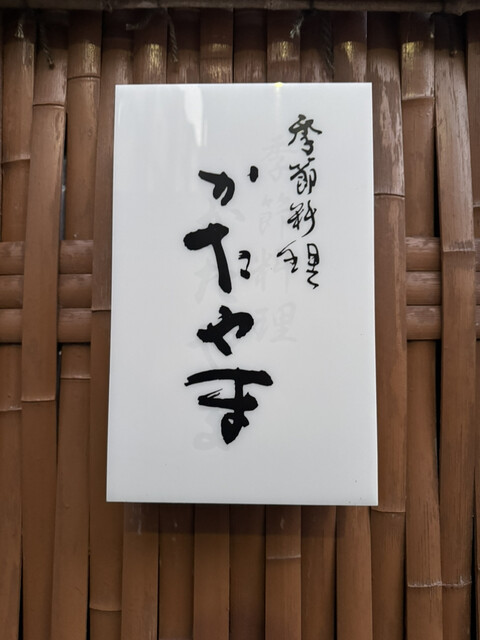 季節料理
かたやま